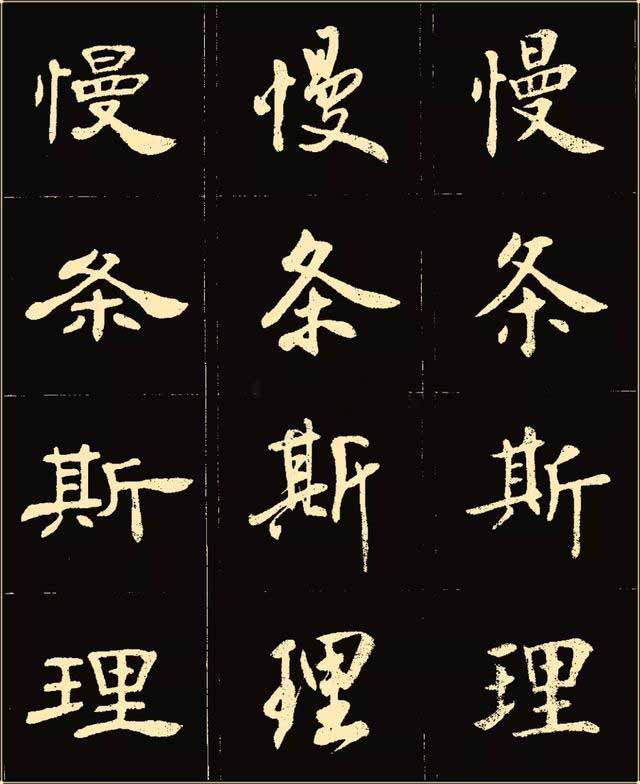 慢慢慢
条条条
斯斯斯
理理理